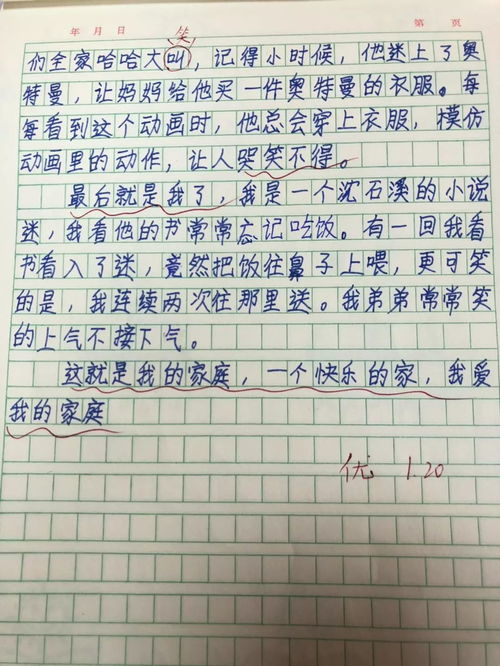 年 月 日 笑 第 页
们全家哈哈大叫，记得小时候，他迷上了奥
特曼，让妈妈给他买一件奥特曼的衣服。每
每看到这个动画时，他总会穿上衣服，模仿
动画里的动作，让人哭笑不得。
最后就是我了，我是一个沈石溪的小说
迷，我看他的书常常忘记吃饭。有一回我看
书看入了迷，竟然把饭往鼻子上喂，更可笑
的是，我连续两次往那里送。我弟弟常常笑
的上气不接下气。
这就是我的家庭，一个快乐的家，我爱
我的家庭
优 1.20